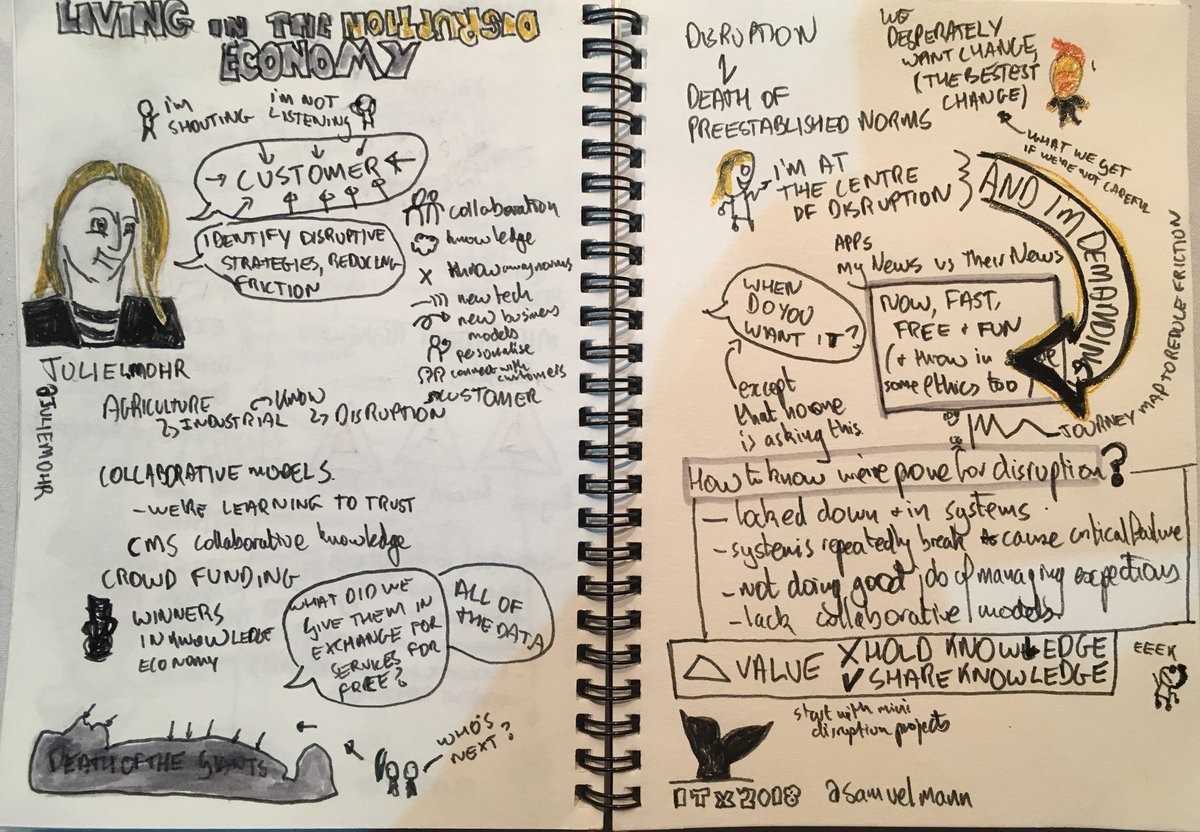 LIVING IN THE DISRUPTION
ECONOMY
I'M
SHOUTING
I'M NOT
LISTENING
CUSTOMER
IDENTIFY DISRUPTIVE
STRATEGIES, REDUCING
FRICTION
collaboration
knowledge
throw away norms
new tech
new business
models
personalise
connect with
customers
CUSTOMER
JULIELMOHR
@JULIEMOHR
AGRICULTURE
INDUSTRIAL
KNOW
DISRUPTION
COLLABORATIVE MODELS.
- WE'RE LEARNING TO TRUST
CMS collaborative knowledge
CROWD FUNDING
WINNERS
IN KNOWLEDGE
ECONOMY
WHAT DID WE
GIVE THEM IN
EXCHANGE FOR
SERVICES FOR
FREE?
ALL OF
THE DATA
DEATH OF THE GIANTS
WHO'S
NEXT?
DISRUPTION
DEATH OF
PREESTABLISHED NORMS
WE
DESPERATELY
WANT CHANGE,
(THE BESTEST
CHANGE)
WHAT WE GET
IF WE'RE NOT CAREFUL
I'M AT
THE CENTRE
OF DISRUPTION
AND I'M DEMANDING
APPS
my News vs Their News
WHEN
DO YOU
WANT IT?
except
that no one
is asking this
NOW, FAST,
FREE + FUN
(+ throw in
some ethics too
JOURNEY MAP TO REDUCE FRICTION
How to know we're prone for disruption?
- locked down + in systems
- systems repeatedly break + cause critical failure
- Not doing good job of managing expectations
- lack collaborative models
△ VALUE
X HOLD KNOWLEDGE
✓ SHARE KNOWLEDGE
EEEK
start with mini
disruption projects
ITX2018 @samuelmann